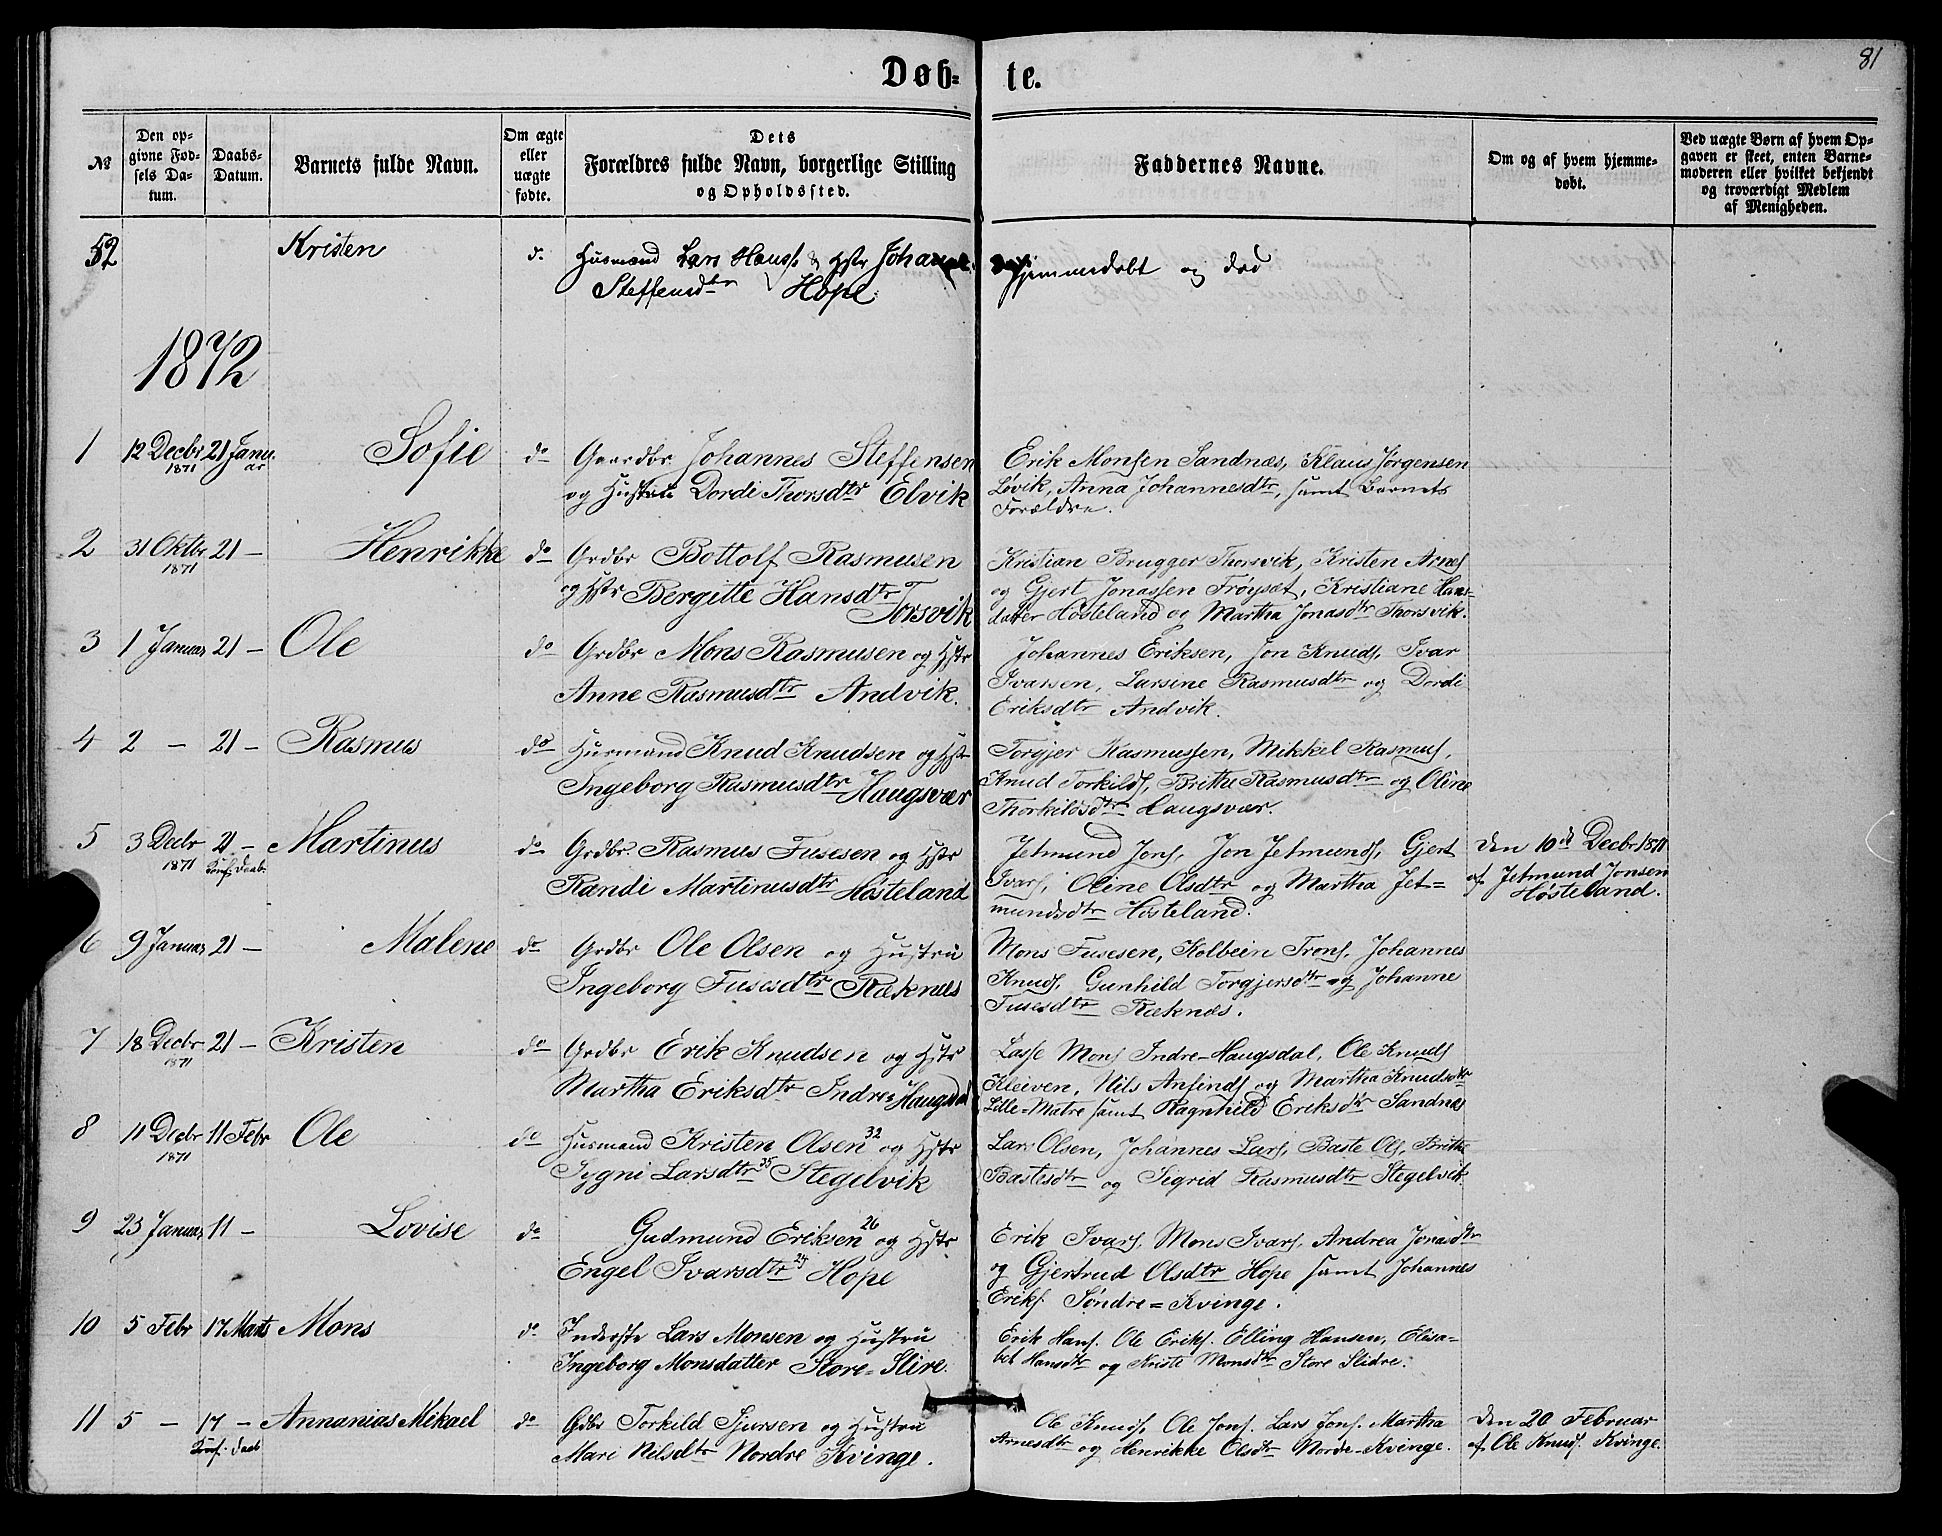 81
Døb-
te.
№
Den op-
givne Fød-
sels Da-
tum.
Daabs-
Datum.
Barnets fulde Navn.
Om ægte
eller
uægte
fødte.
Dets
Forældres fulde Navn, borgerlige Stilling
og Opholdssted.
Faddernes Navne.
Om og af hvem hjemme-
døbt.
Ved uægte Børn af hvem Op-
gaven er skeet, enten Barne-
moderen eller hvilket bekjendt
og troværdigt Medlem
af Menigheden.
52 Kristen d. Husmand Lars Hanss & Hstr Johanne hjemmedøbt og død
Steffensdtr Hope
1872
1 12 Decbr 21 Janu- Sofie do Gaardbr. Johannes Steffensen Erik Monsen Sandnæs, Klaus Jørgensen
1871 ar og Hustru Dordi Thorsdtr Elvik Løvik, Anna Johannesdtr, samt Barnets
Forældre.
2 31 Oktbr 21 — Henrikke do Grdbr Bottolf Rasmusen Kristian Brugger Thorsvik, Kristen Arnes
1871 og Hstr Bergitte Hansdtr og Gjert Jonassen Frøyset, Kristiane Hans-
Torsvik datter Høsteland og Martha Jonasdtr Thorsvik.
3 1 Januar 21 — Ole do Grdbr Mons Rasmusen og Hstr Johannes Eriksen, Jon Knuds, Ivar
Anne Rasmusdtr Andvik. Ivarsen, Larsine Rasmusdtr og Dordi
Eriksdtr Andvik.
4 2 — 21 — Rasmus do Husmand Knud Knudsen og Hstr Torgjer Rasmussen, Mikkel Rasmus,
Ingeborg Rasmusdtr Haugsvær Knud Torkilds, Brithe Rasmusdtr og Oline
Thorkildsdtr Haugsvær.
5 3 Decbr 21 — Martinus do Grdbr. Rasmus Fusesen og Hstr Jetmund Jons, Jon Jetmunds, Gjert Den 10de Decbr 1871
1871 Konf. Daab Randi Martinusdtr Høsteland Ivars, Oline Olsdtr og Martha Jet= af Jetmund Jonsen
mundsdtr Høsteland. Høsteland.
6 9 Januar 21 — Malene do Grdbr Ole Olsen og Hustru Mons Fusesen, Kolbein Trons, Johannes
Ingeborg Fusesdtr Ræknes Knuds, Gunhild Torgjersdtr og Johanne
Fusesdtr Ræknæs.
7 18 Decbr 21 — Kristen do Grdbr Erik Knudsen og Hstr Lasse Mons Indre-Haugsdal, Ole Knuds
1871 Martha Eriksdtr Indre=Haugsdal Kleiven, Nils Anfinds og Martha Knudsdtr
Lille-Matre samt Ragnhild Eriksdtr Sandnæs
8 11 Decbr 11 Febr Ole do Husmand Kristen Olsen 32 og Hstr Lars Olsen, Johannes Lars, Baste Ols, Brithe
1871 Sygni Larsdtr 35 Stegelvik Bastesdtr og Sigrid Rasmusdtr Stegelvik
9 23 Januar 11 — Lovise do Gudmund Eriksen 26 og Hstr Erik Ivars, Mons Ivars, Andrea Jonasdtr
Engel Ivarsdtr 24 Hope og Gjertrud Olsdtr Hope samt Johannes
Eriks. Søndre=Kvinge.
10 5 Febr 17 Marts Mons do Inderste Lars Monsen og Hustru Erik Hans. Ole Eriks. Elling Hansen, Elisa-
Ingeborg Monsdatter Store=Slire. bet Hansdtr og Kristi Monsdtr Store Slidre.
11 5 — 17 — Annanias Mikael do Grdbr Torkild Sjursen og Hustru Ole Knuds, Ole Jons. Lars Jons. Martha Den 20 Februar
Konf. Daab Mari Nilsdtr Nordre Kvinge. Arnesdtr og Henrikke Olsdtr Nordre-Kvinge. af Ole Knuds. Kvinge.